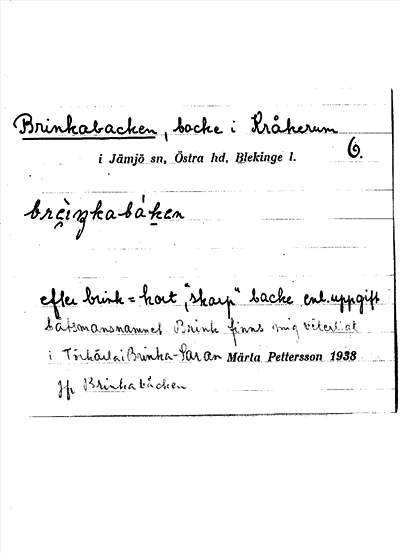 Brinkabacken, backe i Kråkerum
6.
i Jämjö sn, Östra hd, Blekinge l.
efter brink = kort, "skarp" backe enl. uppgift
båtsmansnamnet Brink finns mig veterligt
i Brinka-Saran Märta Pettersson 1938
jfr Brinkabäcken